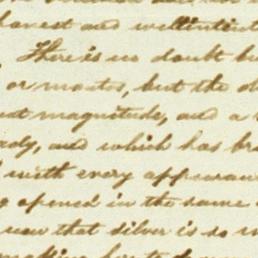 honest and wellintenti
There is no doubt bu
or mantos, but the d
magnitude, and a
ady, and which has br
with every appearanc
opened in the same
now that silver is so